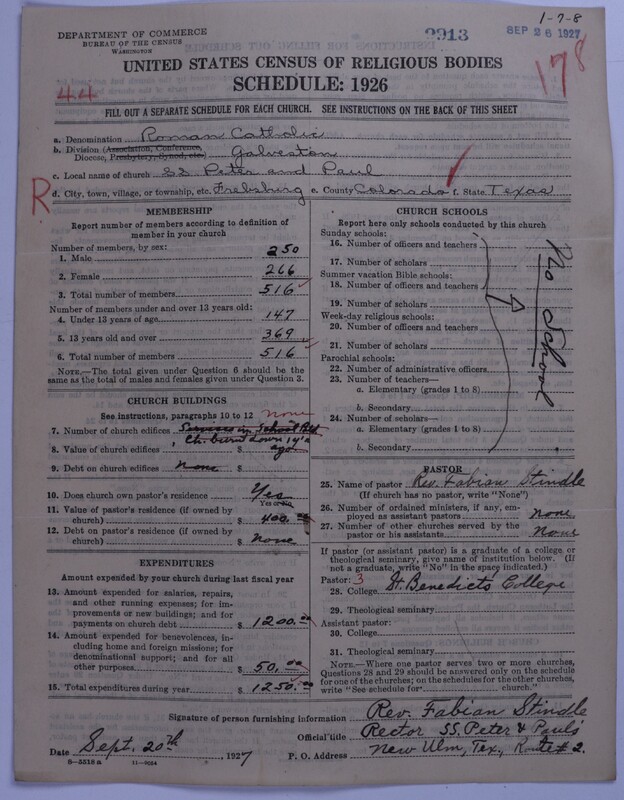 1-7-8
DEPARTMENT OF COMMERCE
BUREAU OF THE CENSUS
WASHINGTON
2913
SEP 26 1927
UNITED STATES CENSUS OF RELIGIOUS BODIES
SCHEDULE: 1926
44
178
FILL OUT A SEPARATE SCHEDULE FOR EACH CHURCH. SEE INSTRUCTIONS ON THE BACK OF THIS SHEET
a. Denomination Roman Catholic
b. Division (Association, Conference, Diocese, Presbytery, Synod, etc.) Galveston
c. Local name of church SS Peter and Paul
R
d. City, town, village, or township, etc. Frelsburg e. County Colorado f. State Texas
MEMBERSHIP
Report number of members according to definition of
member in your church
Number of members, by sex:
1. Male 250
2. Female 266
3. Total number of members 516
Number of members under and over 13 years old:
4. Under 13 years of age 147
5. 13 years old and over 369
6. Total number of members 516
NOTE.—The total given under Question 6 should be
same as the total of males and females given under Question 3.
CHURCH BUILDINGS
See instructions, paragraphs 10 to 12 none
7. Number of church edifices Services in School Bld
, Ch. burnt down 1 y'r
8. Value of church edifices $ ago
9. Debt on church edifices none $
10. Does church own pastor's residence Yes
Yes or No
11. Value of pastor's residence (if owned by
church) $ 400.00
12. Debt on pastor's residence (if owned by
church) $ none
EXPENDITURES
Amount expended by your church during last fiscal year
13. Amount expended for salaries, repairs,
and other running expenses; for im-
provements or new buildings; and for
payments on church debt $ 1200.00
14. Amount expended for benevolences, in-
cluding home and foreign missions; for
denominational support; and for all
other purposes $ 50.00
15. Total expenditures during year $ 1250.00
CHURCH SCHOOLS
Report here only schools conducted by this church
Sunday schools:
16. Number of officers and teachers
17. Number of scholars
Summer vacation Bible schools:
18. Number of officers and teachers
19. Number of scholars
Week-day religious schools:
20. Number of officers and teachers
21. Number of scholars
Parochial schools:
22. Number of administrative officers
23. Number of teachers—
a. Elementary (grades 1 to 8)
b. Secondary
24. Number of scholars—
a. Elementary (grades 1 to 8)
b. Secondary
No School
PASTOR
25. Name of pastor Rev. Fabian Stindle
(If church has no pastor, write "None")
26. Number of ordained ministers, if any, em-
ployed as assistant pastors none
27. Number of other churches served by the
pastor or his assistants None
If pastor (or assistant pastor) is a graduate of a college or
theological seminary, give name of institution below. (If
not a graduate, write "No" in the space indicated.)
Pastor: 3
28. College St. Benedicts College
29. Theological seminary
Assistant pastor:
30. College
31. Theological seminary
NOTE.—Where one pastor serves two or more churches,
Questions 28 and 29 should be answered only on the schedule
for one of the churches; on the schedules for the other churches,
write "See schedule for church."
Signature of person furnishing information Rev. Fabian Stindle
Official title Rector SS. Peter & Paul's
Date Sept. 20th, 1927 P. O. Address New Ulm, Tex., Route # 2.
8-5518 a 11-9024